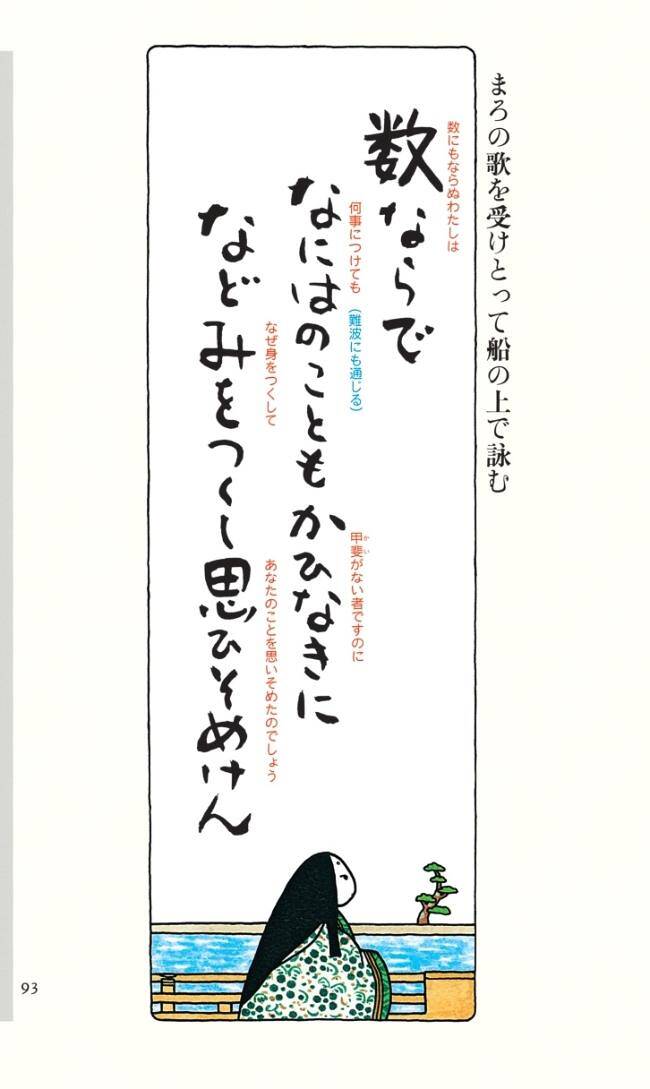 まろの歌を受けとって船の上で詠む
数にもならぬわたしは
数ならで
何事につけても（難波にも通じる）
甲斐がない者ですのに
かい
なにはのことも かひなきに
なぜ身をつくして
あなたのことを思いそめたのでしょう
などみをつくし思ひそめけん
93